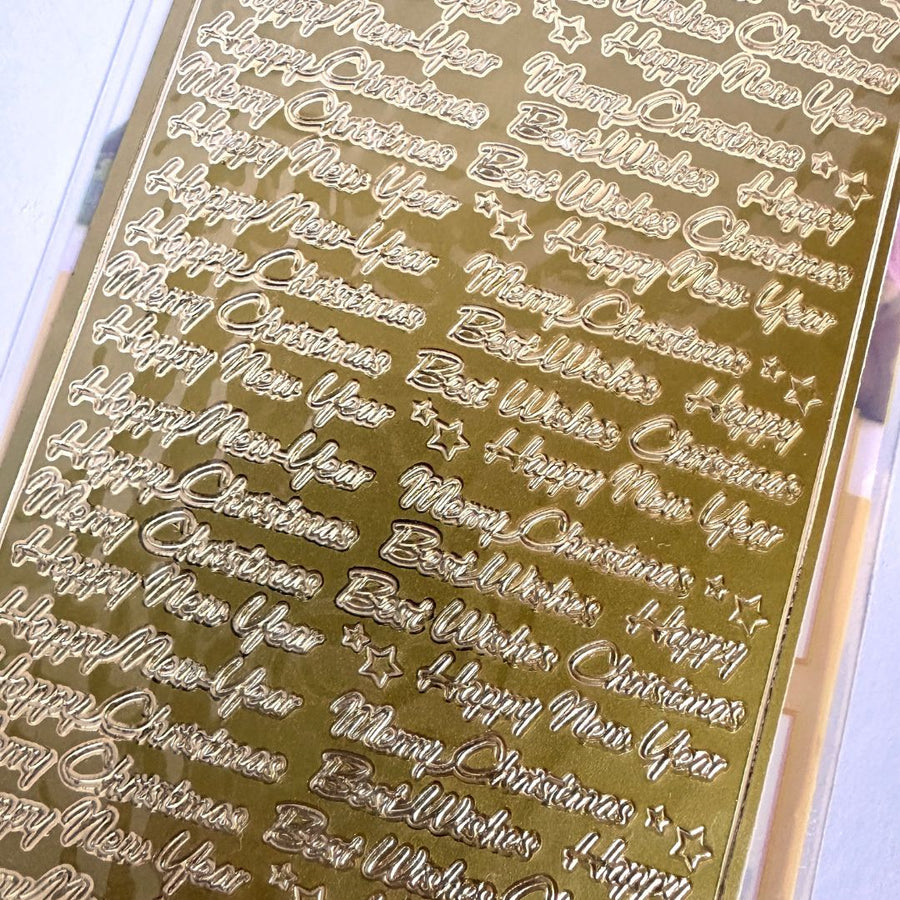 Happy New Year
Happy Christmas
Merry Christmas
Happy New Year
Happy New Year
Happy Christmas
Merry Christmas
Happy New Year
Happy New Year
Happy Christmas
Merry Christmas
Happy New Year
Happy New Year
Happy Christmas
Christmas
New Year
Happy
Wishes Christmas
Happy New Year
Merry Christmas
Best Wishes Happy
Best Wishes Christmas
Happy New Year
Merry Christmas
Best Wishes Happy
Best Wishes Christmas
Happy New Year
Merry Christmas
Best Wishes Happy
Best Wishes Christmas
Happy New Year
Merry Christmas
Best Wishes Happy
Best Wishes